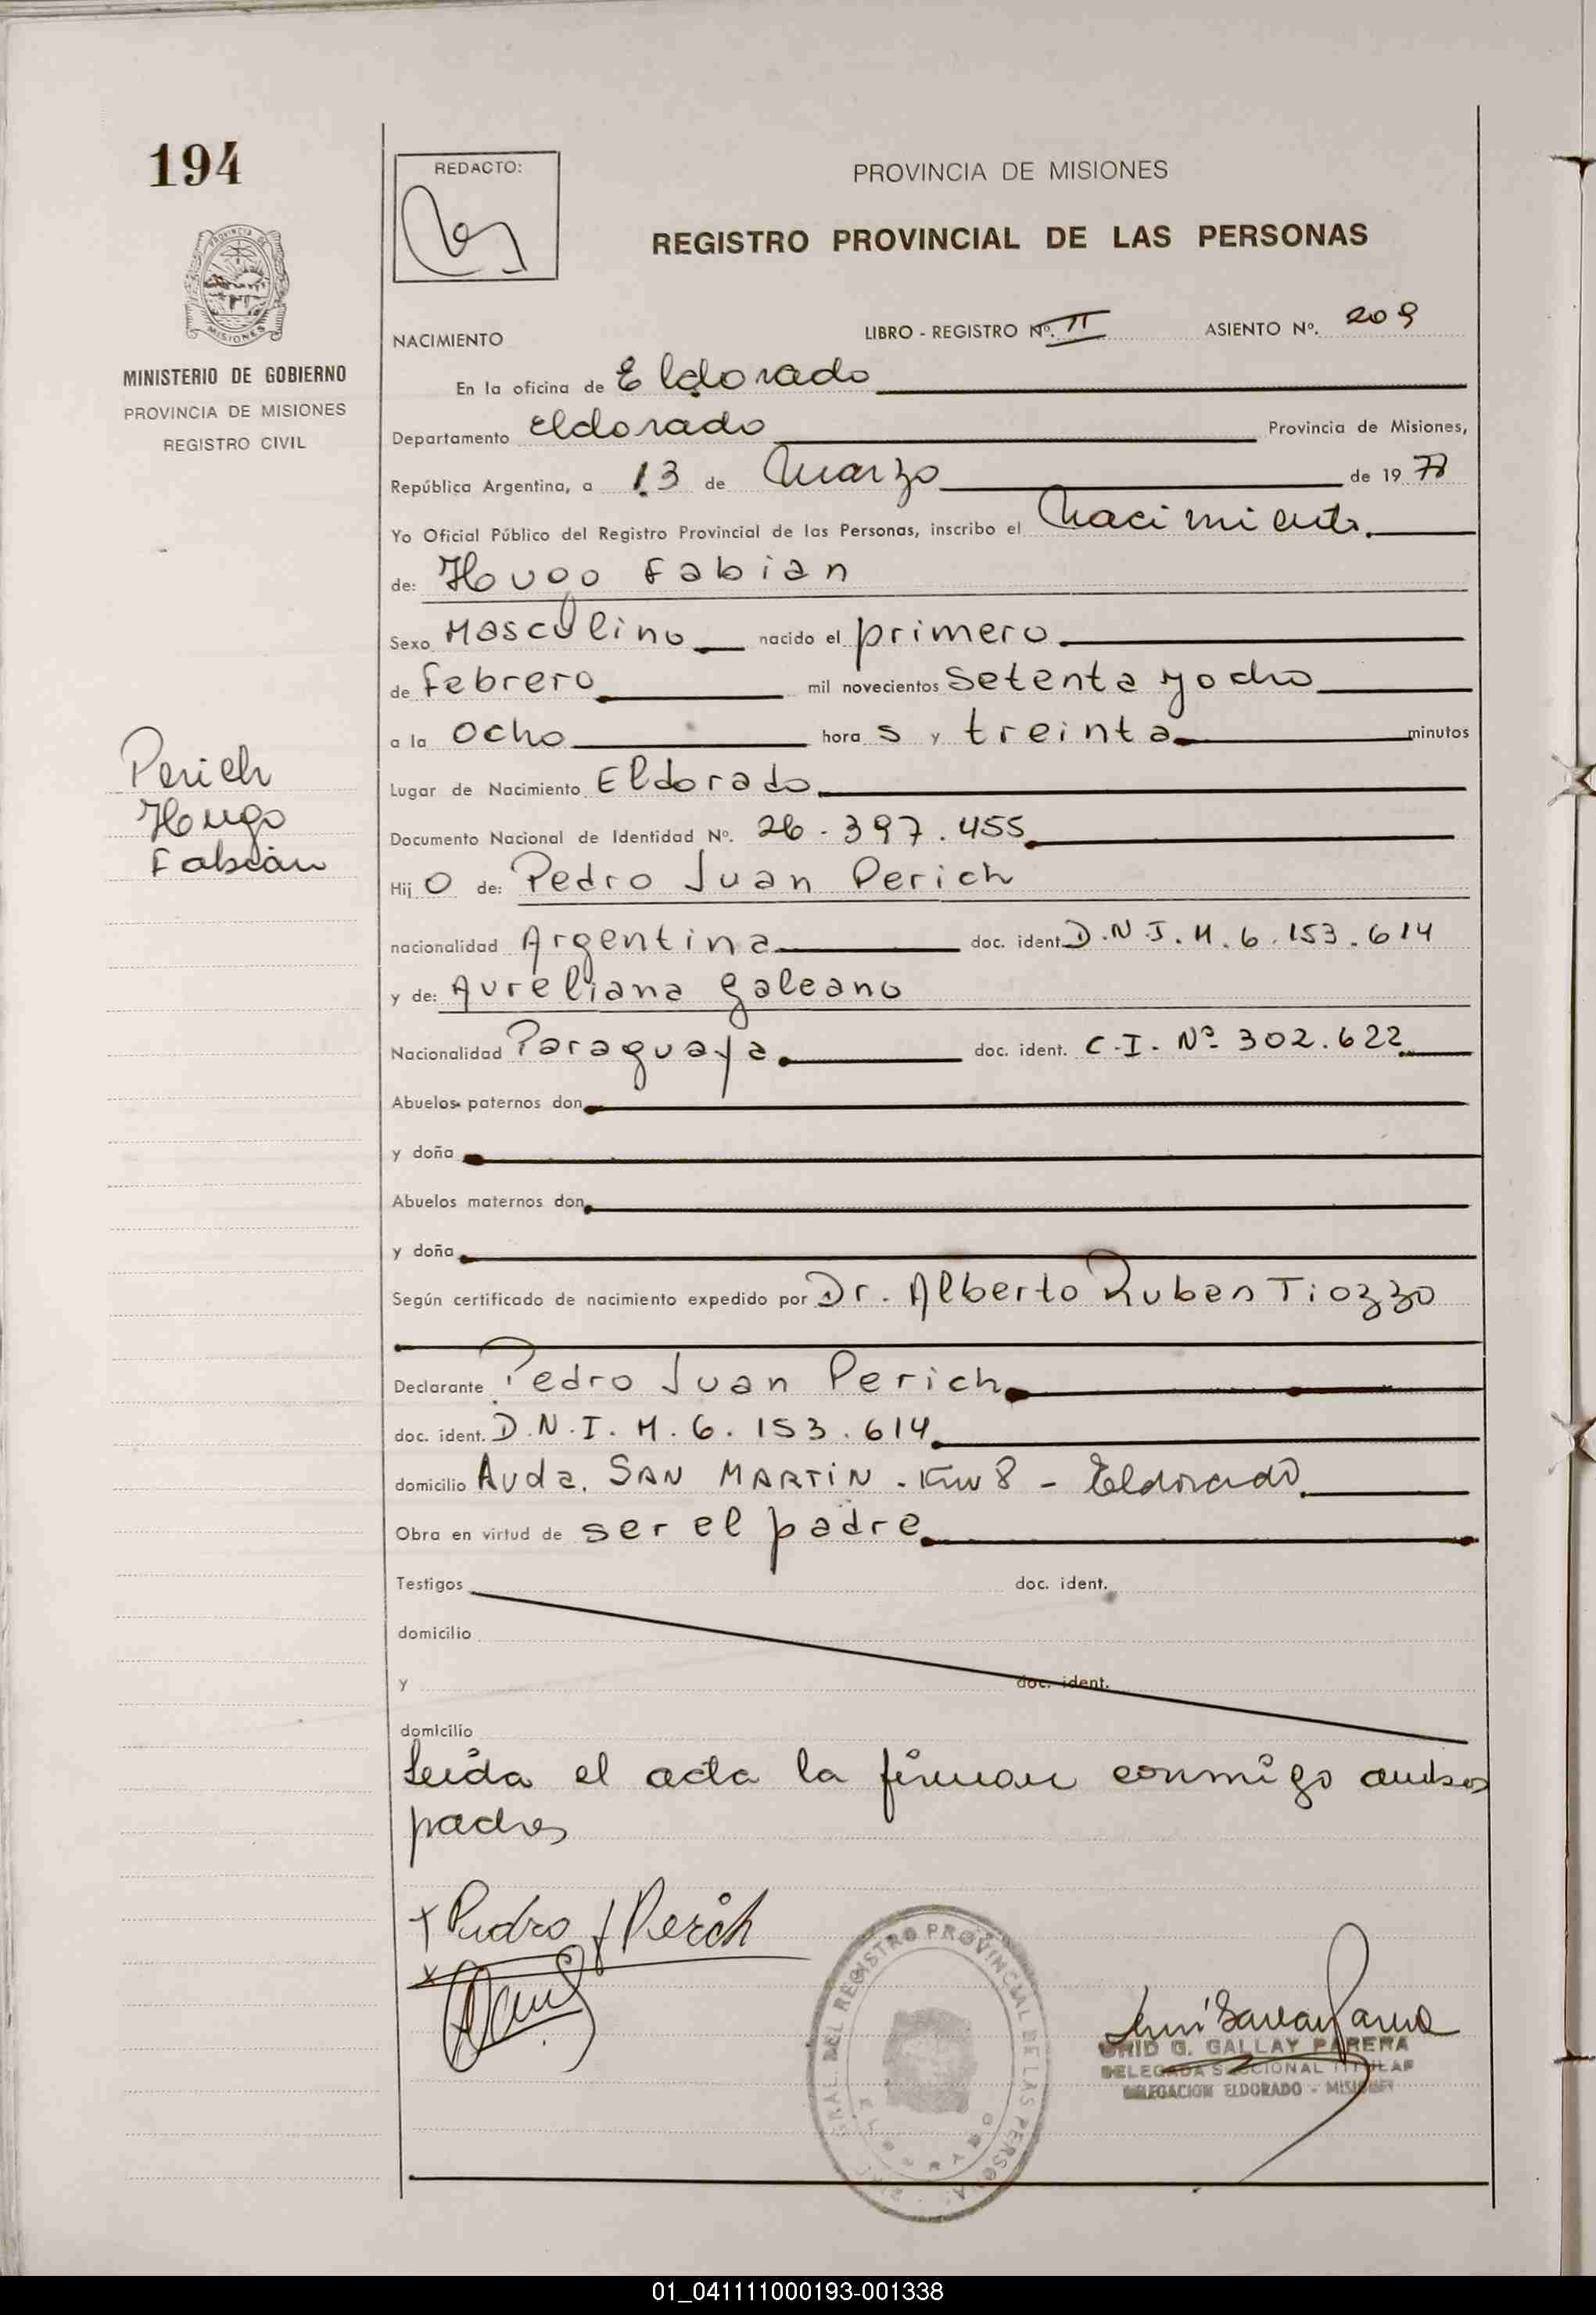 194
REDACTO:
PROVINCIA DE MISIONES
REGISTRO PROVINCIAL DE LAS PERSONAS
PROVINCIA DE
MISIONES
MINISTERIO DE GOBIERNO
PROVINCIA DE MISIONES
REGISTRO CIVIL
NACIMIENTO LIBRO - REGISTRO Nº. II ASIENTO Nº. 209
En la oficina de Eldorado
Departamento Eldorado Provincia de Misiones,
República Argentina, a 13 de Marzo de 19 78
Yo Oficial Público del Registro Provincial de las Personas, inscribo el Nacimiento
de: Hugo Fabian
Sexo Masculino nacido el primero
de Febrero mil novecientos setenta y ocho
a la ocho hora s y treinta minutos
Lugar de Nacimiento Eldorado
Documento Nacional de Identidad Nº. 26.397.455
Perich
Hugo
Fabián
Hij o de: Pedro Juan Perich
nacionalidad Argentina doc. ident. D.N.I.M. 6.153.614
y de: Aureliana Galeano
Nacionalidad Paraguaya doc. ident. C.I. Nº 302.622
Abuelos paternos don
y doña
Abuelos maternos don
y doña
Según certificado de nacimiento expedido por Dr. Alberto Ruben Tiozzo
Declarante Pedro Juan Perich
doc. ident. D.N.I.M. 6.153.614
domicilio Avda. SAN MARTIN - Km 8 - Eldorado
Obra en virtud de ser el padre
Testigos doc. ident.
domicilio
y doc. ident.
domicilio
Leída el acta la firman conmigo ambos
padres
x Pedro J Perich
x
GRAL. DEL REGISTRO PROVINCIAL DE LAS PERSONAS
ELDORADO
G. GALLAY PARERA
DELEGADA SECCIONAL TITULAR
DELEGACION ELDORADO - MISIONES
01_041111000193-001338